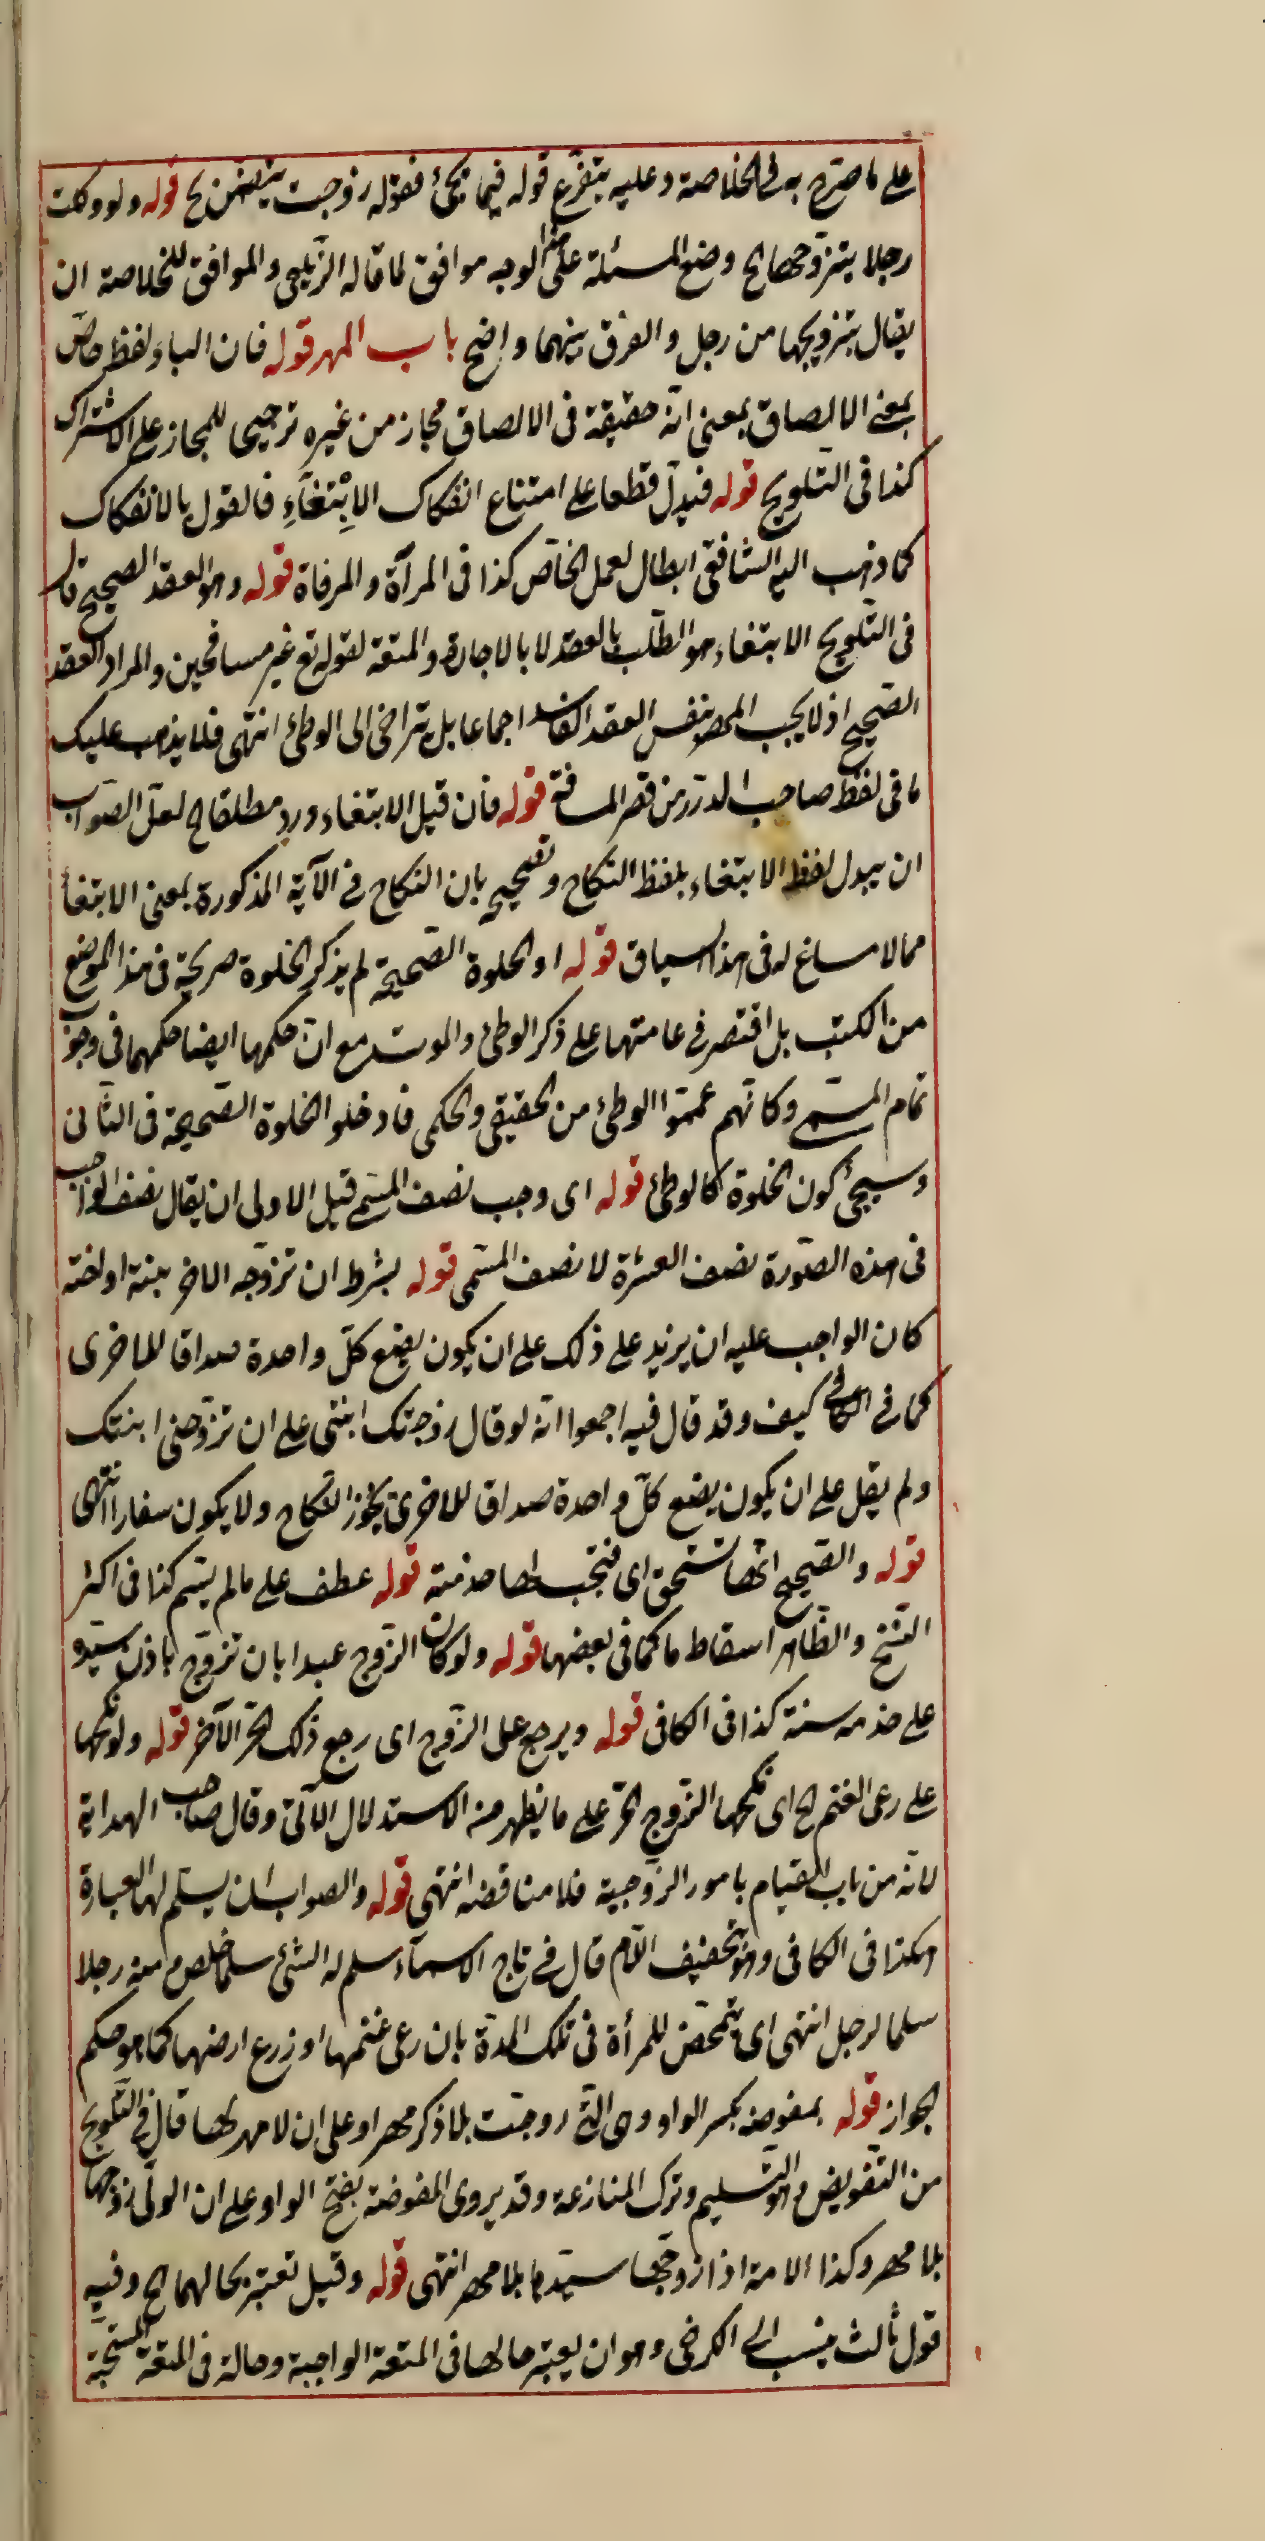 على ما صرّح به فى الخلاصة وعليه يتفرّع قوله فيما يجئ فقوله زوجت يتضمن الخ قوله ولو وكلت
رجلا يتزوّجها الخ وضع المسئلة على هذا الوجه موافق لما قاله الزّيلعى والموافق للخلاصة ان
يقال بتزويجها من رجل والفرق بينهما واضح باب المهر قوله فان الباء لفظ خاصّ
بمعنى الالصاق بمعنى انّه حقيقة فى الالصاق مجاز من غيره ترجيحا للمجاز على الاشتراك
كذا فى التّلويح قوله فيدلّ قطعا على امتناع انفكاك الاِبْتغآءِ فالقول بالانفكاك
كما ذهب اليه الشافعى ابطال لعمل الخاصّ كذا فى المرآة والمرقاة قوله وهو العقد الصحيح قال
فى التّلويح الابتغاء هو الطّلب بالعقد لا بالاجارة والمتعة لقوله تع غير مسافحين والمراد العقد
الصّحيح اذ لا يجب المهر بنفس العقد الفاسد اجماعا بل يتراخى الى الوطئ انتهى فلا يذهب عليك
ما فى لفظ صاحب الدرر من قصر المسافة قوله فان قيل الابتغاء ورد مطلقا الخ لعلّ الصّواب
ان يبدل لفظ الابتغاء بلفظ النكاح وتصحيحه بان النكاح فى الآية المذكورة بمعنى الابتغا
مما لا مساغ له فى هذا السياق قوله او الخلوة الصّحيحة لم يذكر الخلوة صريحة فى هذا الموضع
من الكتب بل اقتصر فى عامتها على ذكر الوطئ والموت مع انّ حكمها ايضا حكمهما فى وجوب
تمام المسمّى وكانّهم عمّموا الوطئ من الحقيقى والحكمى فادخلوا الخلوة الصّحيحة فى الثّانى
وسيجئ كون الخلوة كالوطئ قوله اى وجب نصف المسمّى قيل الاولى ان يقال نصف الواجب
فى هذه الصّورة نصف العشرة لا نصف المسمّى قوله بشرط ان تزوّجه الاخر بنته او اخته
كان الواجب عليه ان يزيد على ذلك على ان يكون بضع كلّ واحدة صداقا للاخرى
كما فى الكافى كيف وقد قال فيه اجمعوا انّه لو قال زوجتك ابنتى على ان تزوّجنى ابنتك
ولم يقل على ان يكون بضع كلّ واحدة صداق للاخرى يجوز النّكاح ولا يكون شغارا انتهى
قوله والصّحيح انّها تستحق اى فتجب لها خدمته قوله عطف على ما لم يسمّ كذا فى اكثر
النّسخ والظّاهر اسقاط ما كما فى بعضها قوله ولو كان الزّوج عبدا بان تزوّج باذن سيّده
على خدمه سنة كذا فى الكافى قوله ويرجع على الزّوج اى رجع ذلك الحرّ الآخر قوله ولو نكحها
على رعى الغنم الخ اى نكحها الزّوج الحرّ على ما يظهر منه الاستدلال الآتى وقال صاحب الهداية
لانّه من باب القيام بامور الزّوجية فلا مناقضه انتهى قوله والصواب ان يسلّم لها العبارة
هكذا فى الكافى وهو بتخفيف اللّام قال فى تاج الاسمآء سلم له الشئ سلما خلص منه رجلا
سلما لرجل انتهى اى يتمحّض للمرأة فى تلك المدّة بان رعى غنمها او زرع ارضها كما هو حكم
الجواز قوله بمفوضه بكسر الواو وهى التى زوجت بلا ذكر مهر او على ان لا مهر لها قال فى التّلويح
من التّفويض وهو التّسليم وترك المنازعة وقد يروى المفوضة بفتح الواو على ان الولّى زوّجها
بلا مهر وكذا الامة اذا زوّجها سيّدها بلا مهر انتهى قوله وقيل تعتبر بحالهما الخ وفيه
قول ثالث ينسب الى الكرخى وهو ان يعتبر حالها فى المتعة الواجبة وحاله فى المتعة المستحبّة